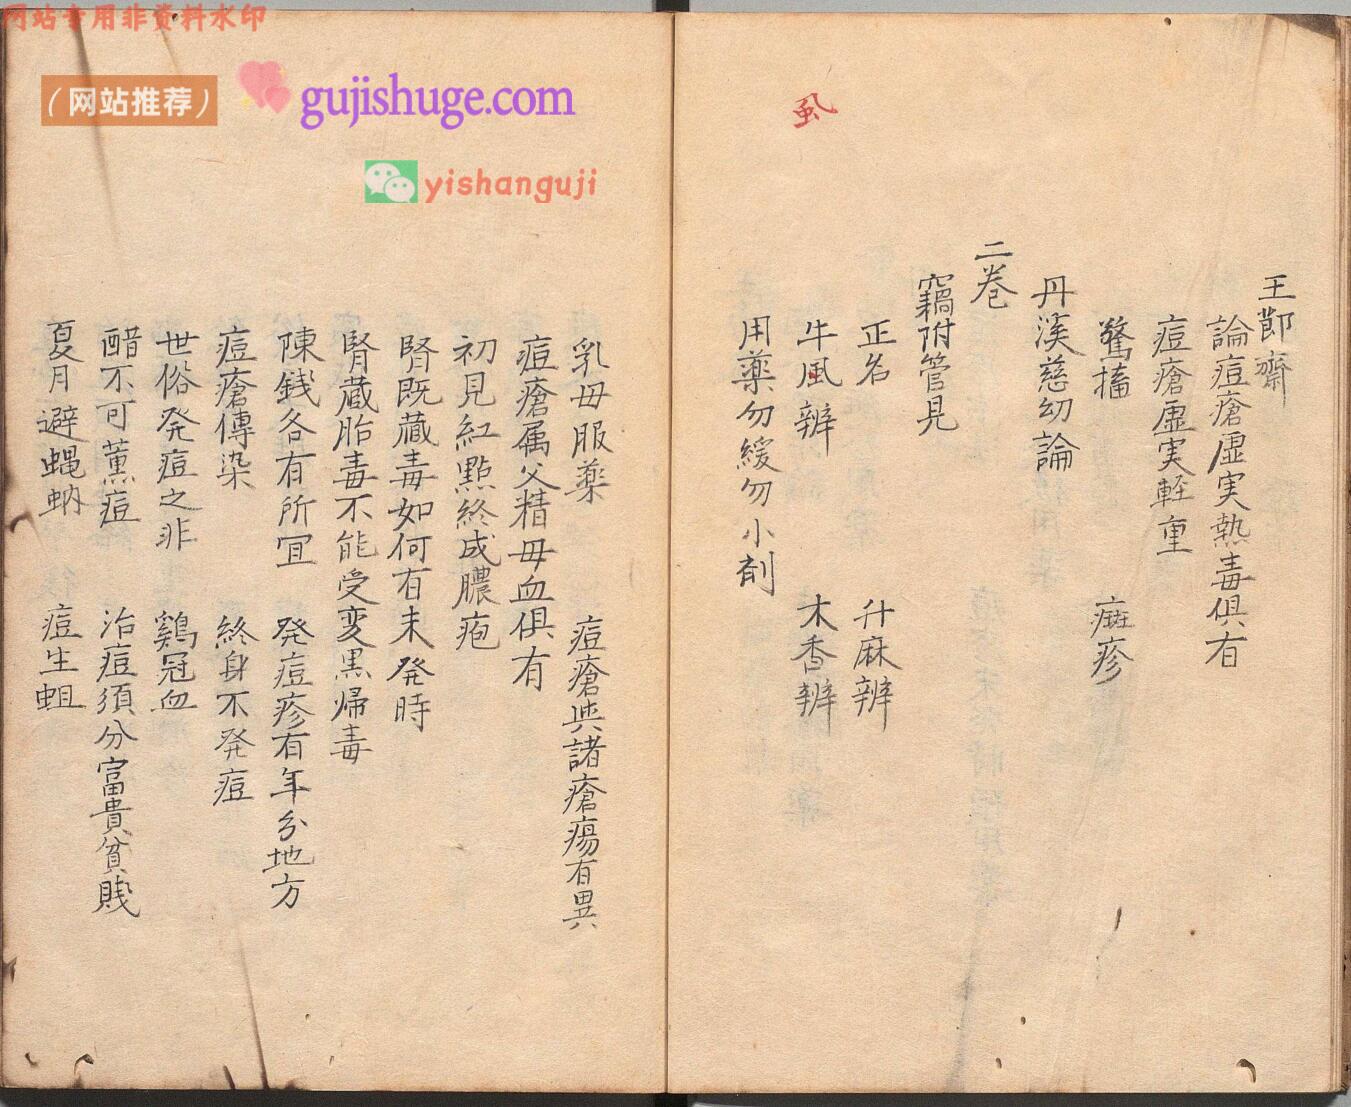 网站专用非资料水印
（网站推荐）
gujishuge.com
yishanguji
虱
王節齋
論痘瘡虛実熱毒俱有
痘瘡虛実軽重
驚搐 癍疹
丹溪慈幼論
二卷
竊附管見
正名 升麻辨
牛風辨 木香辨
用薬勿緩勿小剤
乳母服薬 痘瘡與諸瘡瘍有異
痘瘡属父精母血俱有
初見紅點終成膿疱
腎既蔵毒如何有未発時
腎蔵胎毒不能受変黒帰毒
陳錢各有所宜 発痘疹有年分地方
痘瘡傳染 終身不発痘
世俗発痘之非 鷄冠血
醋不可薫痘 治痘須分富貴貧賎
夏月避蝿蚋 痘生蛆